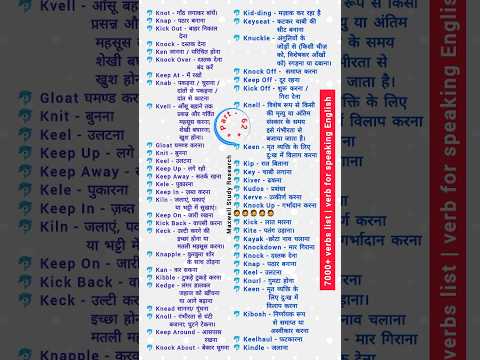 Kvell - आँसू बहाने
प्रसन्न और
महसूस क
शेखी बघ
खुश होन
Gloat घमण्ड कर
Knit - बुनना
Keel - उलटना
Keep Up - लगे
Keep Away -
Kele - पुकारना
Keep in - ज़ब्त
Kiln - जलाएं,
या भट्टी में
Keep On - जारी
Kick Back - वा
Keck - उल्टी कर
इच्छा होना
मतली मह
Knapple - कुड़
Knot - गाँठ लगाकर बांधें।
Knap - पठार बनाना
Kick Out - बाहर निकाल
देना
Knock - दस्तक देना
Kan जानना / परिचित होना
Knock Over - दस्तक देना
बंद करें
Keep At - में रखो
Knab - पकड़ना / चुराना /
दांतों से पकड़ना /
दांत से काटना
Kvell - आँसू बहाने तक
प्रसन्न और गर्वित
महसूस करना;
शेखी बघारना;
खुश होना।
Gloat घमण्ड करना।
Knit - बुनना
Keel - उलटना
Keep Up - लगे रहो
Keep Away - सतर्क रहना
Kele - पुकारना
Keep in - ज़ब्त करना
Kiln - जलाएं, पकाएं
या भट्टी में सुखाएं।
Keep On - जारी रखना
Kick Back - वापसी करना
Keck - उल्टी करने की
इच्छा होना या
मतली महसूस करना।
Knapple - कुड़कुड़ा शोर
के साथ तोड़ना
Kan - कर सकना
Kibble - टुकड़े टुकड़े करना
Kedge - लंगर डालकर
जहाज़ को खींचना
या आगे बढ़ाना
Knead सानना/ गूंथना
Knoll - गंभीरता से घंटी
बजाना; घुटने टेकना।
Keep Around - आसपास
रखना
Knock About - बेकार घूमना
Part - 62
Maxwell Study Research
Kid-ding - मज़ाक कर रहा है
Keyseat - काटकर चाबी की
सीट बनाना
Knuckle - अंगुलियों के
जोड़ों से (किसी चीज़
को, विशेषकर आँखों
को) रगड़ना या दबाना।
Knock Off - समाप्त करना
Keep Off - दूर रहना
Kick Off - शुरू करना /
गिरा देना
Knell - विशेष रूप से किसी
की मृत्यु या अंतिम
संस्कार के समय
इसे गंभीरता से
बजाया जाता है।
Keen - मृत व्यक्ति के लिए
दुःख में विलाप करना
Kip - रात बिताना
Key - चाबी लगाना
Kiver - ढकना
Kudos - प्रशंसा
Kerve - उत्कीर्ण करना
Knock Up - गर्भादान करना
Kick - लात मारना
Kite - पतंग उड़ाना
Kayak -छोटा नाव चलाना
Knockdown - मार गिराना
Knock - दस्तक देना
Knap - पठार बनाना
Keel - उलटना
Knurl - गुमटा होना
Keen - मृत व्यक्ति के लिए
दुःख में
विलाप करना
Kibosh - निर्णायक रूप
से समाप्त या
अस्वीकार करना
Keelhaul - फटकारना
Kindle - जलाना
7000+ verbs list | verb for speaking English